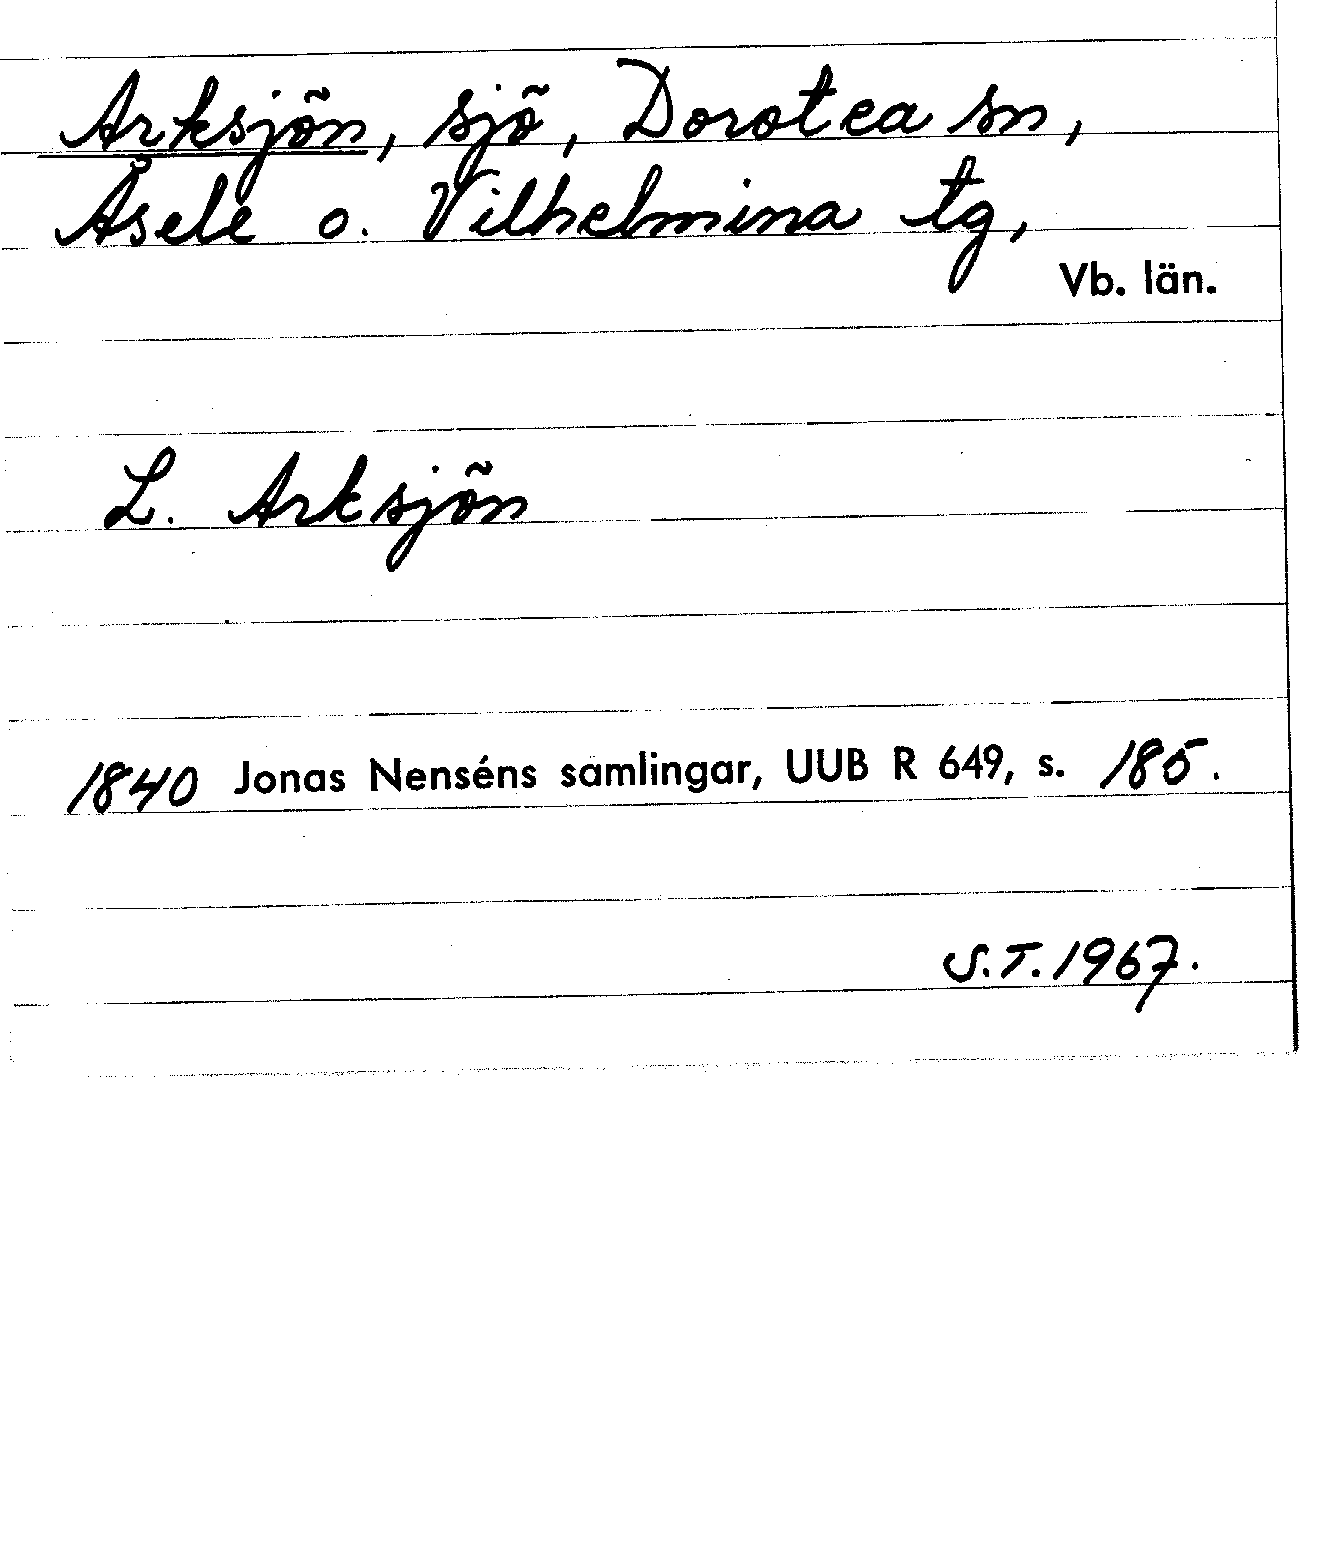 Arksjön, sjö, Dorotea sn,
Åsele o. Vilhelmina tg,
Vb. län.
L. Arksjön
1840 Jonas Nenséns samlingar, UUB R 649, s. 185.
S.T. 1967.